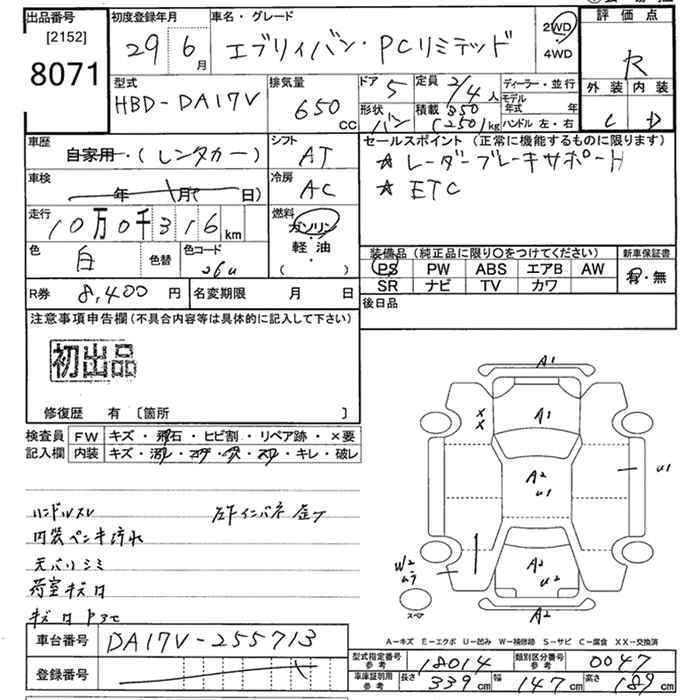 出品番号
[2152]
8071
初度登録年月
29 6月
車名・グレード
エブリィバン・PCリミテッド
2WD
4WD
評価点
R
外装 内装
C D
型式
HBD-DA17V
排気量
650 CC
ドア 5
形状 バン
定員 2/4人
積載 350 (250)kg
ディーラー・並行
モデル年式 年
ハンドル 左・右
車歴
自家用・(レンタカー)
シフト
AT
セールスポイント (正常に機能するものに限ります)
☆ レーダーブレーキサポート
☆ ETC
車検
年 月 日)
冷房
AC
走行
10万0千316km
燃料
ガソリン
軽油
( )
色
白
色替
色コード
26U
装備品(純正品に限り○をつけてください)
PS PW ABS エアB AW
SR ナビ TV カワ
新車保証書
有・無
R券 8,400円
名変期限 月 日
後日品
注意事項申告欄(不具合内容等は具体的に記入して下さい)
初出品
修復歴 有 [箇所 ]
検査員記入欄
FW キズ・飛石・ヒビ割・リペア跡・×要
内装 キズ・・・・・キレ・破レ
ハンドルスレ
内装ペンキ汚れ
天バリシミ
荷室キズ
A1
A1
XX
A2
U1
U1
W2
A2
U2
スペア
A2
A-キズ E-エクボ U-凹み W-補修跡 S-サビ C-腐食 XX-交換済
車台番号 DA17V-255713
登録番号
型式指定番号 参考 18014
類別区分番号 参考 0047
車庫証明用 参考 長さ 339cm 幅 147cm 高さ 189cm